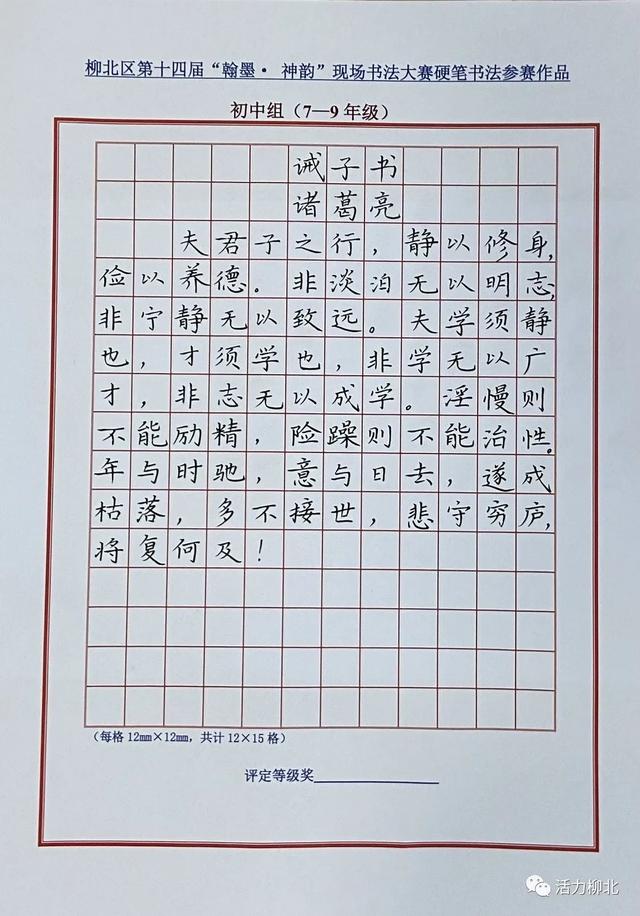 柳北区第十四届“翰墨· 神韵”现场书法大赛硬笔书法参赛作品
初中组（7—9年级）
诫子书
诸葛亮
夫君子之行，静以修身，
俭以养德。非淡泊无以明志，
非宁静无以致远。夫学须静
也，才须学也，非学无以广
才，非志无以成学。淫慢则
不能励精，险躁则不能治性。
年与时驰，意与日去，遂成
枯落，多不接世，悲守穷庐，
将复何及！
（每格12mm×12mm，共计12×15格）
评定等级奖
活力柳北